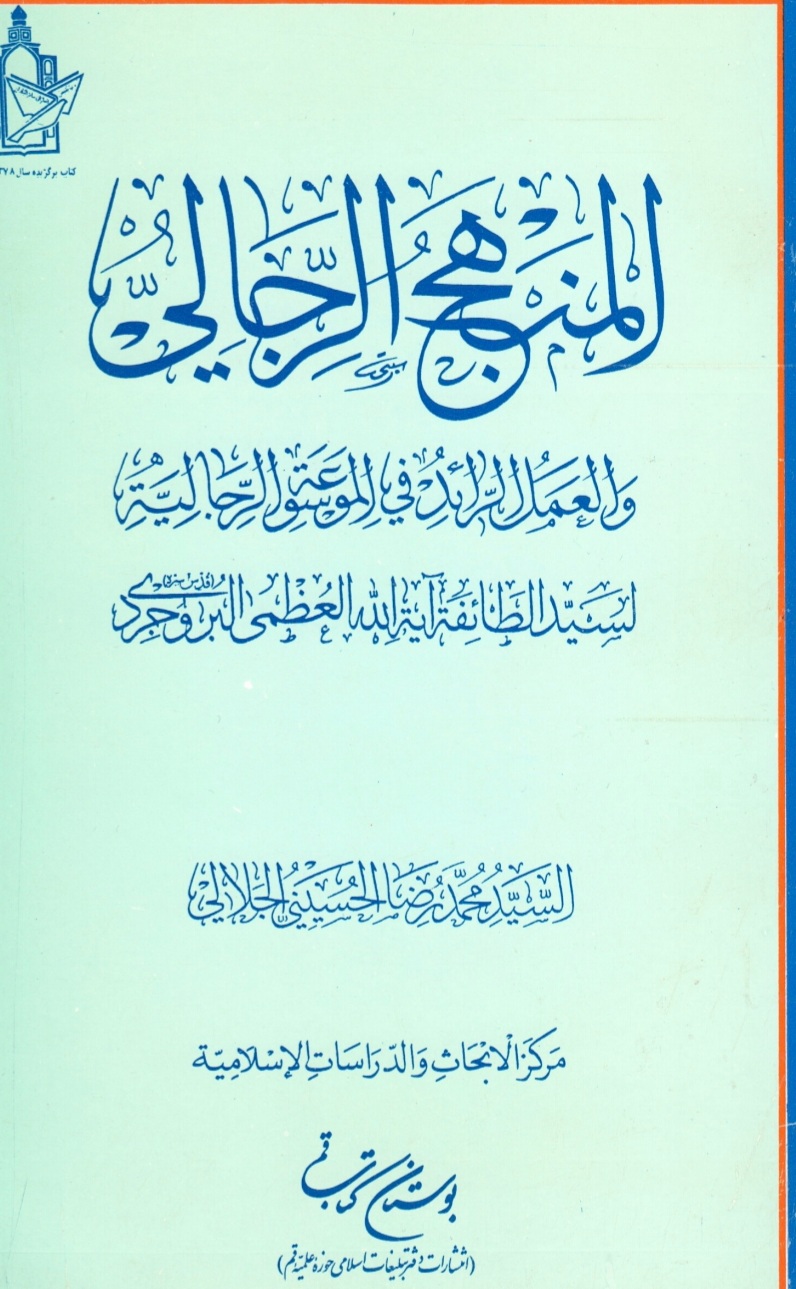 کتاب برگزیده سال ۳۷۸
المنهج الرِّجاليّ
وَالعَمَلُ الرّائِدُ في المَوسُوعَةِ الرِّجَاليَّةِ
لسَيِّد الطَّائِفَة آيَة اللّٰه العُظْمى البُروجِردي
السَّيِّدُ مُحَمَّد رِضَا الحُسَيْنِيُّ الجَلالي
مَركَز الْابْحَاثِ وَالدّرَاسَاتِ الإسْلَاميّة
بوستان کتاب قم
(انتشارات دفتر تبلیغات اسلامی حوزه علمیّه قم)